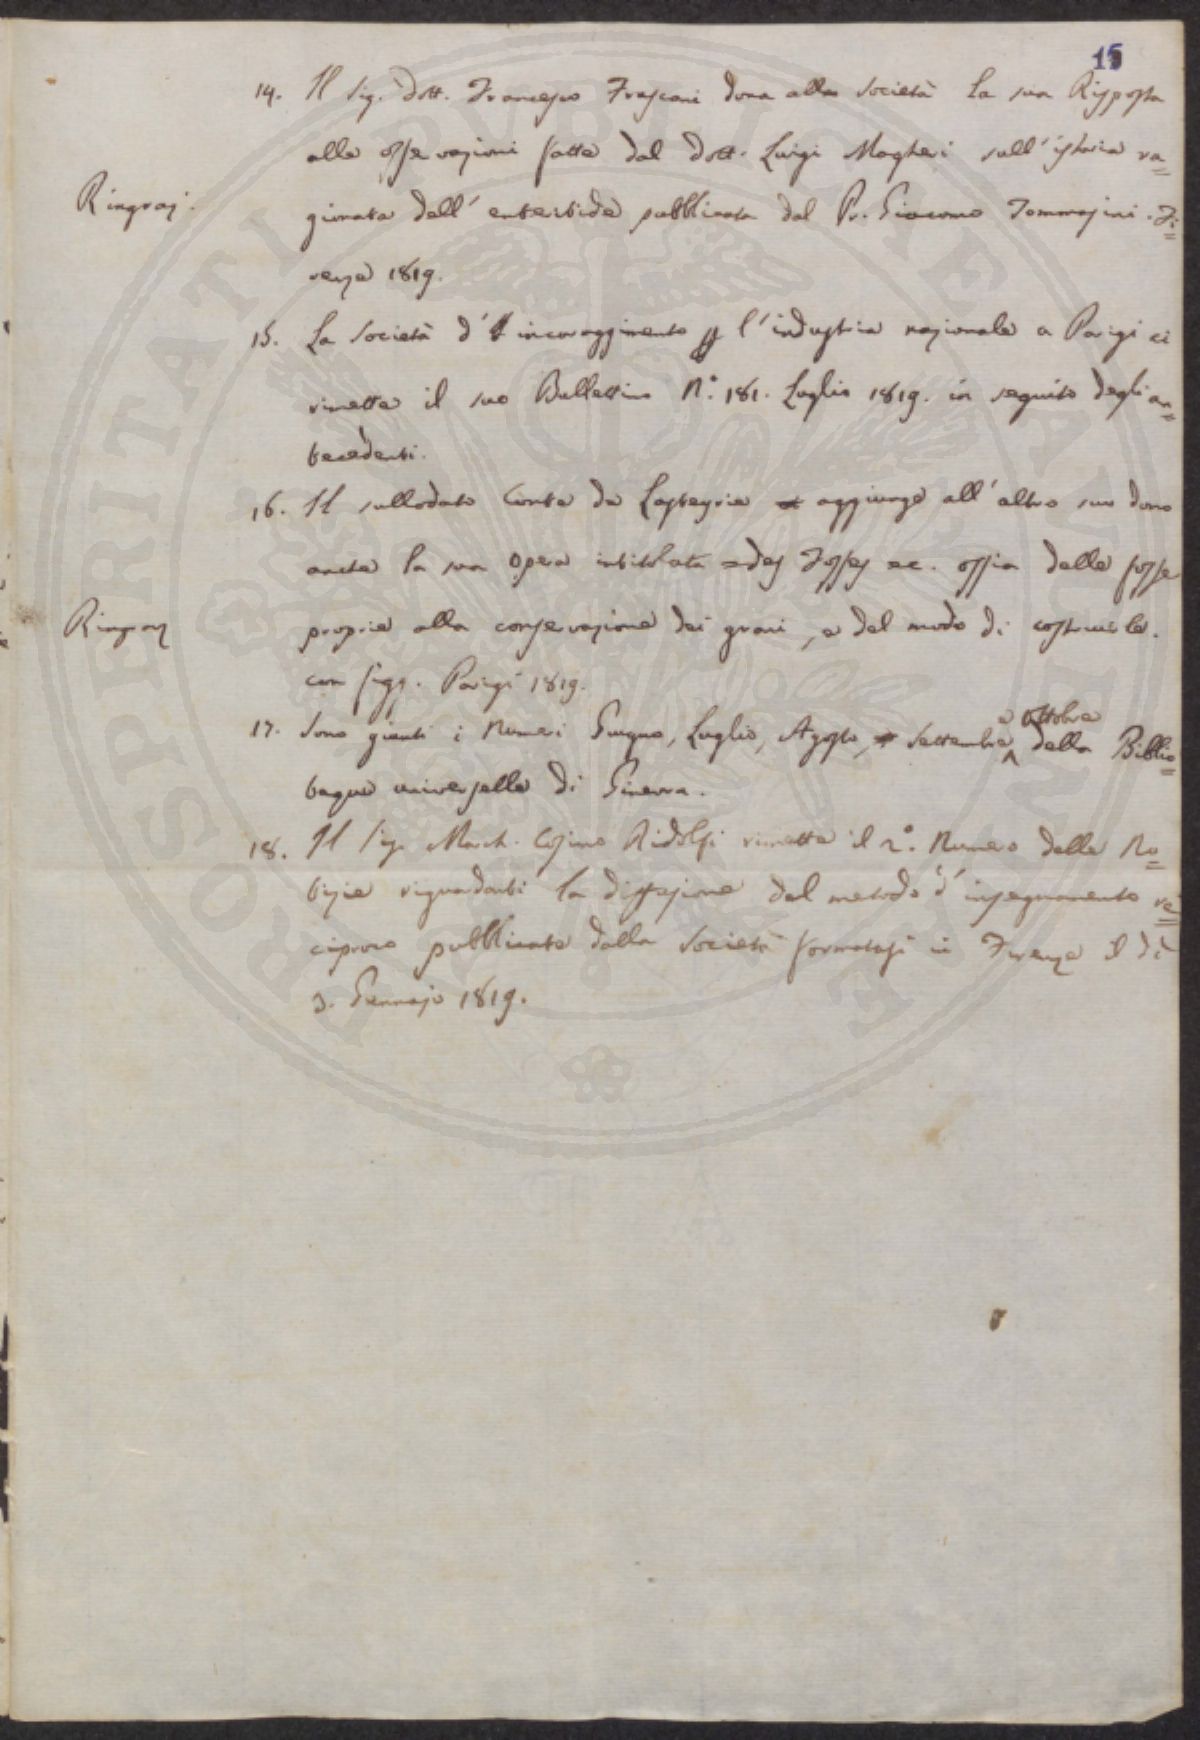 15
14. Il Sig. Dott. Francesco Frescani dona alla Società la sua Risposta
alle osservazioni fatte dal Dott. Luigi Magheri sull'istoria ra=
Ringraz.
gionata dell'enteritide pubblicata dal Pr. Giacomo Tommasini. Fi=
renze 1819.
15. La Società d'incoraggimento p l'industria nazionale a Parigi ci
rimette il suo Bullettino N.° 181. Luglio 1819. in seguito degli an=
tecedenti.
16. Il sullodato Conte de Lasteyrie aggiunge all'altro suo dono
anche la sua opera intitolata = des Fosses ec. ossia delle fosse
Ringraz
proprie alla conservazione dei grani, e del modo di costruirle.
con figg. Parigi 1819.
17. Sono giunti i Numeri Giugno, Luglio, Agosto, Settembre e Ottobre della Biblio=
teque universelle di Ginevra.
18. Il Sig. March. Cosimo Ridolfi rimette il 2.° Numero delle No=
tizie riguardanti la diffusione del metodo d'insegnamento re=
ciproco pubblicate dalla Società formatasi in Firenze il dì
3. Gennajo 1819.
PROSPERITATI PUBLICAE AUGENDAE